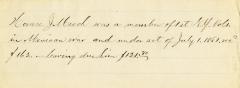 Horace J. Meech was a member of 1st N.Y. Vols.
in Mexican war and under act of July 1. 1861, recd
$162. — leaving due him $121.